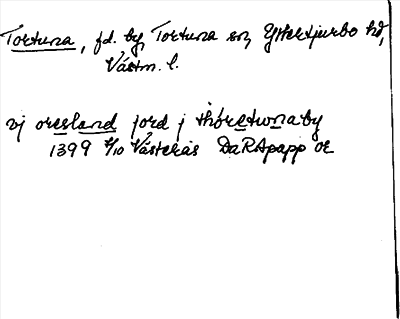 Tortuna, fd. by, Tortuna sn, Yttertjurbo hd,
Västm. l.
vj oresland jord j thoretunaby
1399 4/10 Västerås DaRApapp or